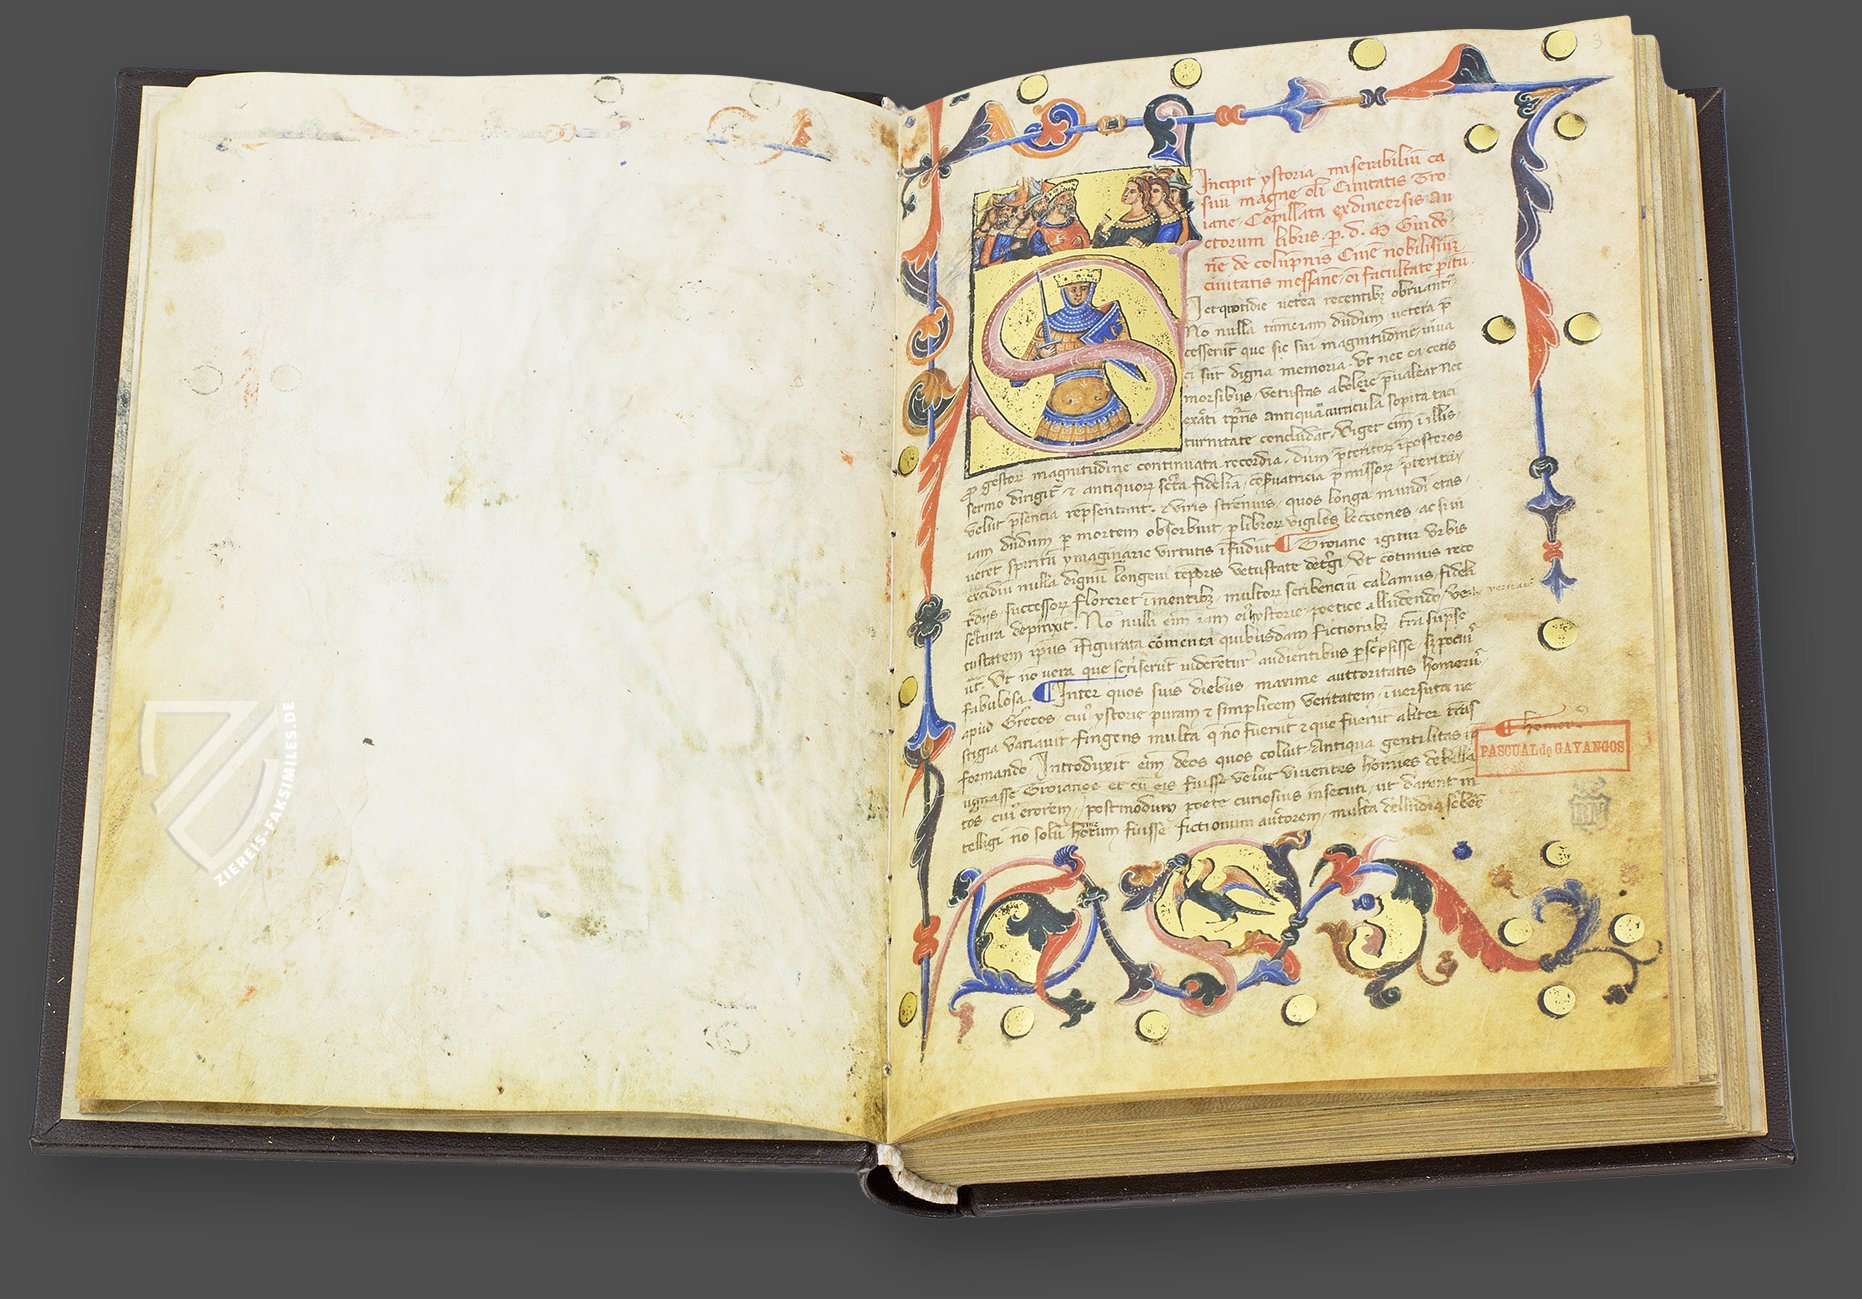 Incipit ystoria miserabiliū ca
suu magne oli Ciuitatis Tro
iane. Copillata ex diuersis au
ctorum libris p. d. M Guido
nē de colūpnis Ciuē nobilissimū
ciuitatis messane oi facultate pitu.
et quotidie uetea recentibʒ obruant
No nulla tamē iam dudum uetera p
cesserūt que sic sui magnitudine uiua
ci sūt digna memoria. Ut nec ea cecis
morsibus uetustas abolere preualeat nec
exacti tpris antiqua curricula sopita taci
turnitate concludāt. Viget eim i illis
p gestor magnitudine continuata recordia dum preteritor i posteros
sermo dirigit ⁊ antiquor scrta fidelia cōseruatricia p missor preteritor
velut psencia represēntant. ⁊ uiris strenuis quos longa mundi etas
iam dudum p mortem obsorbuit p libror vigiles lectiones ac si ui
uerēt spiritū ymaginarie virtutis ifūdūt Troiane igitur Urbis
excidiū nulla dignū longeui tēporis vetustate detgi. Ut cotinuis reco
rdijs successor floreret i mentibʒ multor scribenciū calamus fideli
sctura depinxit. No nulli eim iam eius ystorie poetice alludendo ve
ritatem ipius ifigurata cōmenta quibusdam fictionibʒ trasūpse
rūt. Ut nō uera que scriserūt uiderētur audientibus pscpsisse sʒ pociꝰ
fabulosa. Inter quos suis diebus maxime auttoritatis homerꝰ
apud Grecos eius ystorie puram ⁊ simplicem ueritatem i uersuta ue
stigia variauit fingens multa q nō fuerūt ⁊ que fuerūt aliter trās
formando Introduxit eim deos quos coluit Antiqua gentilitas ip
ugnasse Troianos et cū eis fuisse velut viuentes hoīmes debella
tos cuiꝰ erorem postmodum poete curiosius insecuti ut darent in
telligi nō solū homerum fuisse fictionum auctorem multa
homerꝰ
PASCUAL de GAYANGOS
ZIEREIS-FAKSIMILES.DE